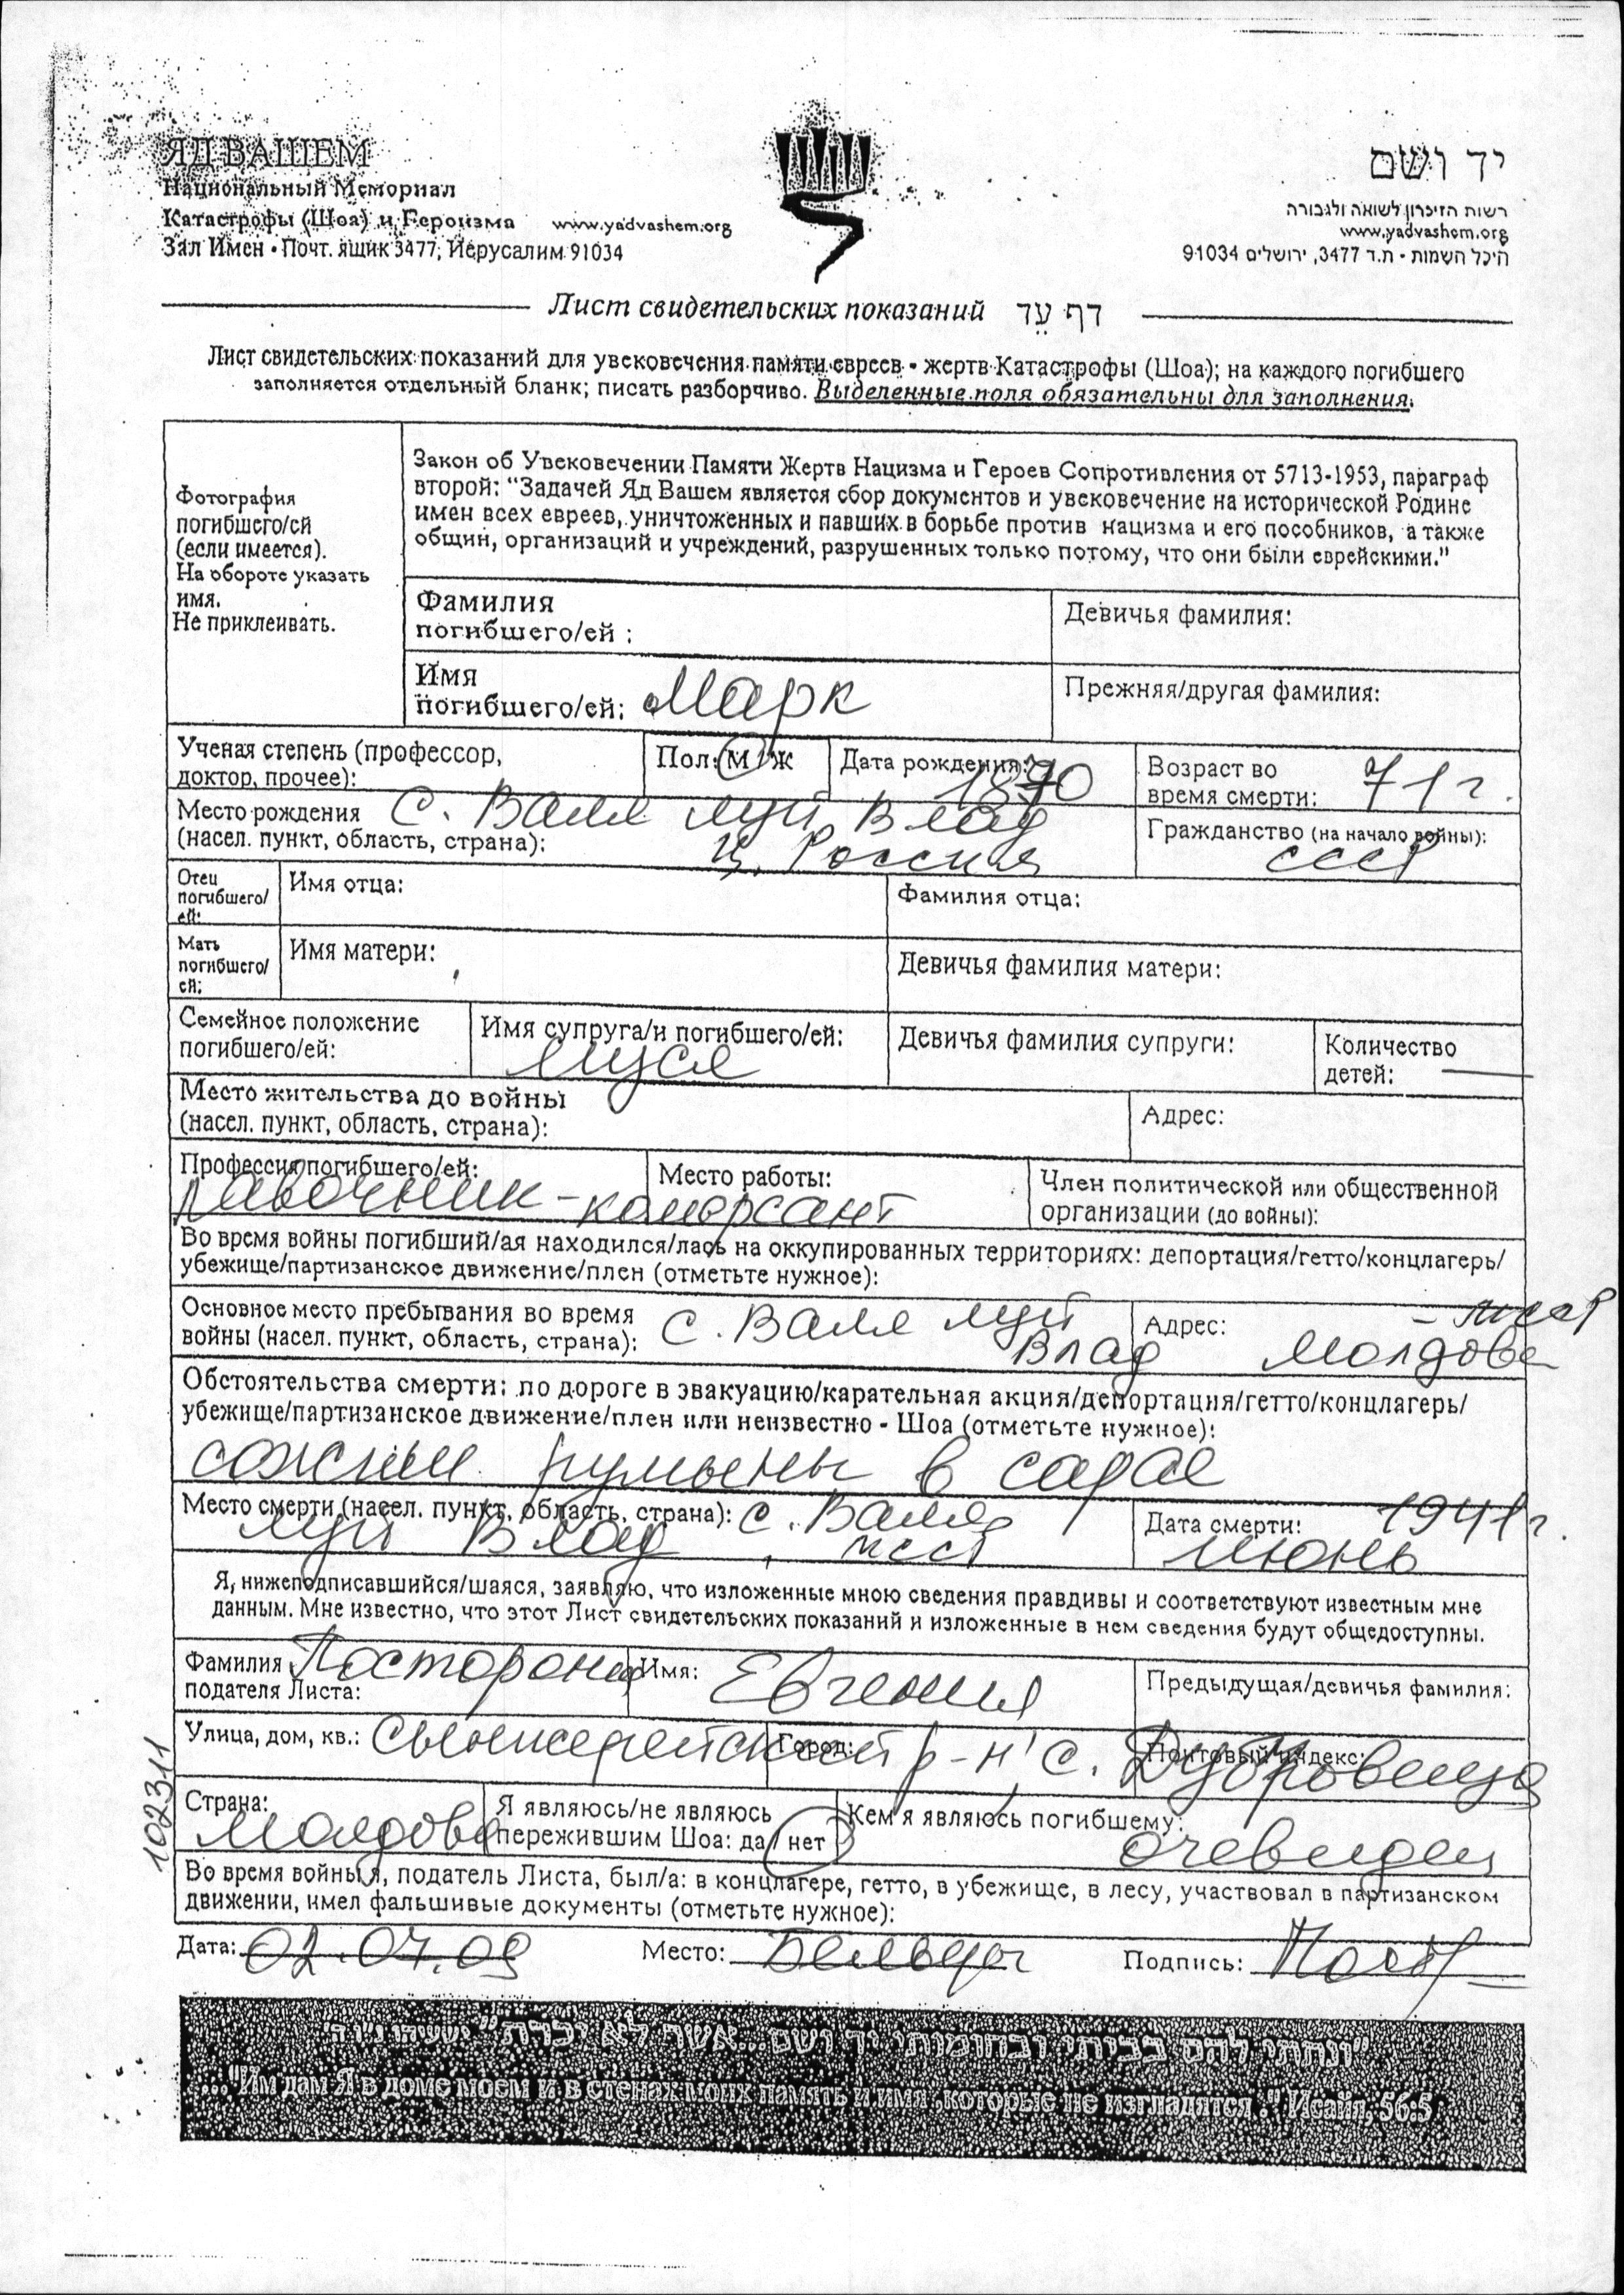 ЯД ВАШЕМ
Национальный Мемориал
Катастрофы (Шоа) и Героизма www.yadvashem.org
Зал Имен • Почт. ящик 3477, Иерусалим 91034
יד ושם
רשות הזיכרון לשואה ולגבורה
www.yadvashem.org
היכל השמות • ת.ד 3477, ירושלים 91034
Лист свидетельских показаний דף עֵד
Лист свидетельских показаний для увековечения памяти евреев - жертв Катастрофы (Шоа); на каждого погибшего
заполняется отдельный бланк; писать разборчиво. Выделенные поля обязательны для заполнения.
Фотография
погибшего/ей
(если имеется).
На обороте указать
имя.
Не приклеивать.
Закон об Увековечении Памяти Жертв Нацизма и Героев Сопротивления от 5713-1953, параграф
второй: “Задачей Яд Вашем является сбор документов и увековечение на исторической Родине
имен всех евреев, уничтоженных и павших в борьбе против нацизма и его пособников, а также
общин, организаций и учреждений, разрушенных только потому, что они были еврейскими.”
Фамилия
погибшего/ей :
Девичья фамилия:
Имя
погибшего/ей: Марк
Прежняя/другая фамилия:
Ученая степень (профессор,
доктор, прочее):
Пол: М/Ж
Дата рождения: 1870
Возраст во
время смерти: 71 г.
Место рождения с. Валя луй Влад
(насел. пункт, область, страна): Ц. Россия
Гражданство (на начало войны):
СССР
Отец
погибшего/
ей:
Имя отца:
Фамилия отца:
Мать
погибшего/
ей:
Имя матери:
Девичья фамилия матери:
Семейное положение
погибшего/ей:
Имя супруга/и погибшего/ей:
Муся
Девичья фамилия супруги:
Количество
детей: —
Место жительства до войны
(насел. пункт, область, страна):
Адрес:
Профессия погибшего/ей:
Место работы:
лавочник - комерсант
Член политической или общественной
организации (до войны):
Во время войны погибший/ая находился/лась на оккупированных территориях: депортация/гетто/концлагерь/
убежище/партизанское движение/плен (отметьте нужное):
Основное место пребывания во время
войны (насел. пункт, область, страна): с. Валя луй
Влад
Адрес:
Молдова
Обстоятельства смерти: по дороге в эвакуацию/карательная акция/депортация/гетто/концлагерь/
убежище/партизанское движение/плен или неизвестно - Шоа (отметьте нужное):
сожгли румыны в сарае
Место смерти (насел. пункт, область, страна): с. Валя
луй Влад, МССР
Дата смерти: 1941 г.
июнь
Я, нижеподписавшийся/шаяся, заявляю, что изложенные мною сведения правдивы и соответствуют известным мне
данным. Мне известно, что этот Лист свидетельских показаний и изложенные в нем сведения будут общедоступны.
Фамилия
подателя Листа:
Имя: Евгения
Предыдущая/девичья фамилия:
Улица, дом, кв.: Сынжерейский р-н, с. Дубровица
Город:
Почтовый индекс:
Страна:
Молдова
Я являюсь/не являюсь
пережившим Шоа: да / нет
Кем я являюсь погибшему:
очевидец
Во время войны я, податель Листа, был/а: в концлагере, гетто, в убежище, в лесу, участвовал в партизанском
движении, имел фальшивые документы (отметьте нужное):
Дата: 02.07.09 Место: Бельцы Подпись:
102311
"ונתתי להם בביתי ובחומותי יד ושם...אשר לא יכרת" ישעיהו נ"ו ה'
..."Им дам Я в доме моем и в стенах моих память и имя, которые не изгладятся." Исайя, 56:5